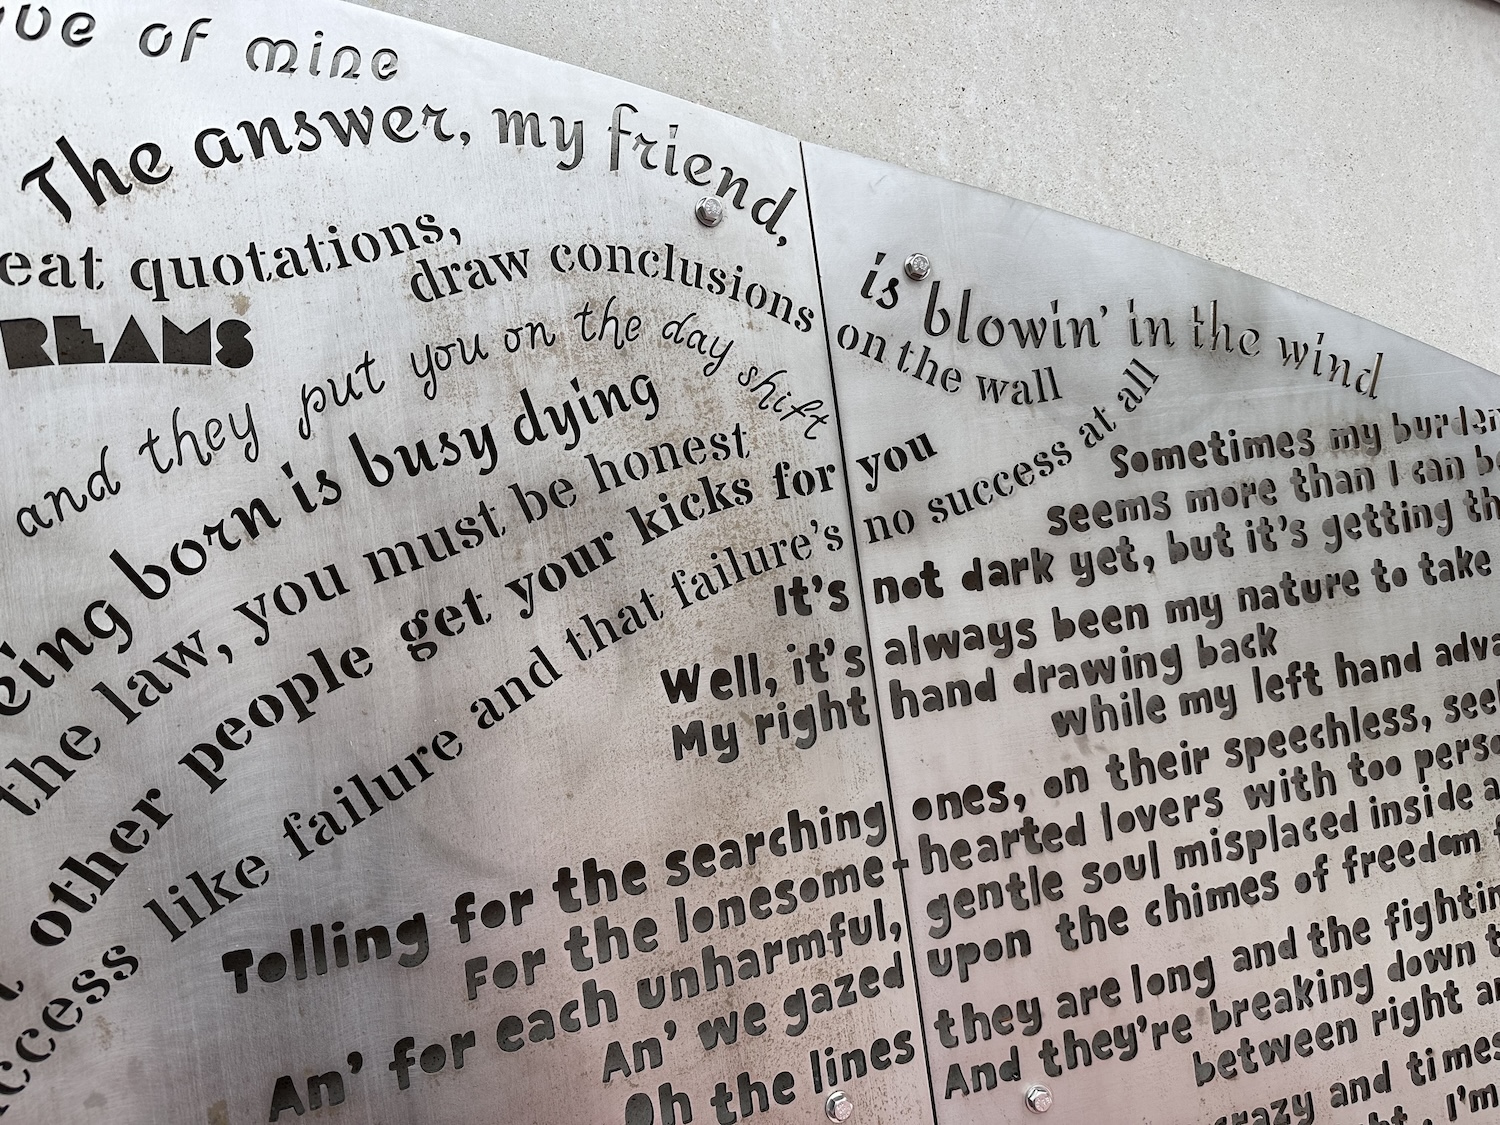 of mine
The answer, my friend, is blowin' in the wind
quotations, draw conclusions on the wall
and they put you on the day shift
born is busy dying
the law, you must be honest
other people get your kicks for you
like failure and that failure's no success at all
Sometimes my
seems more than I can
It's not dark yet, but it's getting
Well, it's always been my nature to take
My right hand drawing back
while my left hand
Tolling for the searching ones, on their speechless,
For the lonesome-hearted lovers with too
An' for each unharmful, gentle soul misplaced inside
An' we gazed upon the chimes of freedom
Oh the lines they are long and the
And they're breaking down
between right
crazy and times
I'm